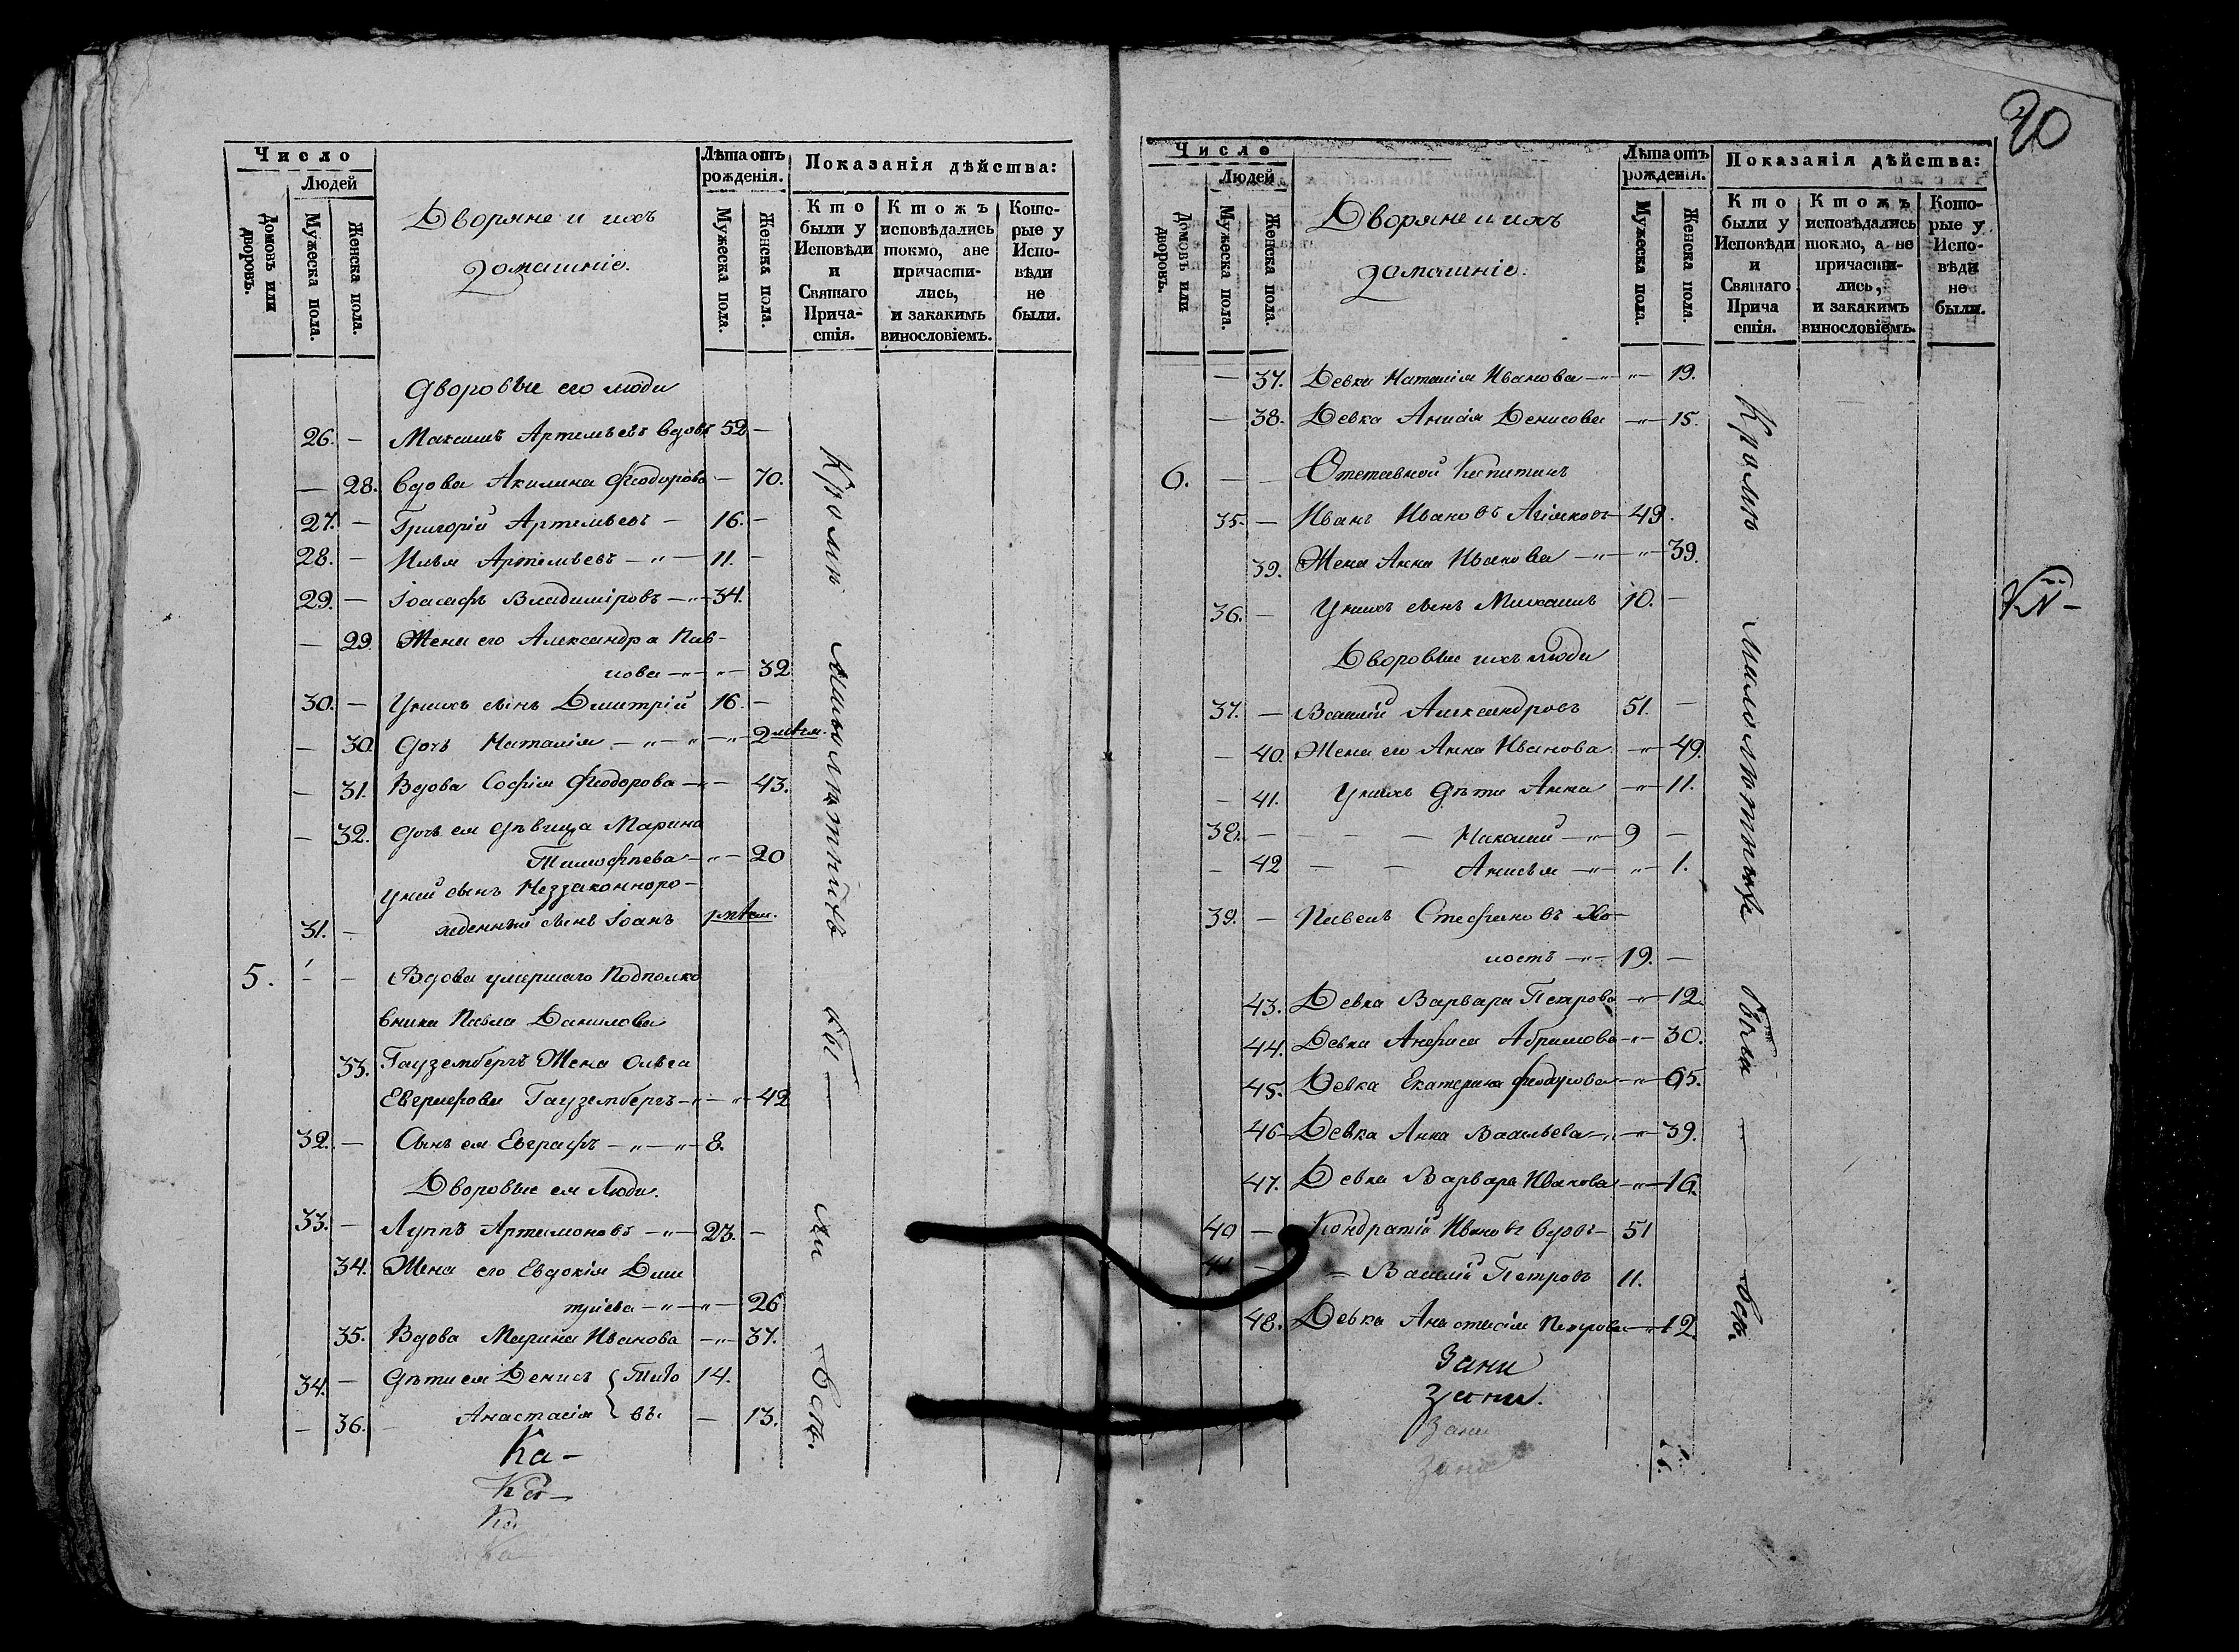 Число
Людей
Домовъ или дворовъ.
Мужеска пола.
Женска пола.
Дворяне и ихъ
домашніе.
Лѣта отъ рожденія.
Мужеска пола.
Женска пола.
Показанія дѣйства:
Кто были у Исповѣди и Святаго Прича-стія.
Ктожъ исповѣдались токмо, ане причасти-лись, и закакимъ винословіемъ.
Кото-рые у Испо-вѣди не были.
Дворовые его люди
26. — Максимъ Артемьевъ вдовъ 52 —
— 28. Вдова Акилина Ѳиодорова — 70.
27. — Григорій Артемьевъ — 16. —
28. — Илья Артемьевъ — „ — 11. —
29. — Іоасафъ Владиміровъ — „ — 34.
— 29 Жена его Александра Пав-
лова — „ — „ — 32
30. — У нихъ сынъ Димитрій 16. —
— 30 Дочь Наталія — „ — „ — „ — 2 лѣт.
— 31. Вдова Софія Ѳиодорова — „ — 43.
— 32. Дочь ея дѣвица Марина
Тимофѣева — „ — 20
У ней сынъ Незаконноро-
31. — жденный сынъ Іоанъ 1 лѣт.
5. — — Вдова умершаго Подполко
вника Павла Данилова
33. Гауземберъ Жена Ольга
Евграфова Гауземберъ — „ — „ — 42
32. — Сынъ ея Евграфъ — „ — „ — 8.
Дворовые ея Люди.
33. — Луппъ Артамоновъ — „ — 23. —
34. Жена его Евдокія Дими
тріева — „ — „ — 26
35. Вдова Марина Иванова — „ — 37.
34. — Дѣти ея Денисъ { Тито 14.
— 36. — Анастасія { въ. — 13.
Ка-
Ка-
Ка
Ка
Кромѣ малолѣтнихъ бы — ли — всѣ.
20
Число
Людей
Домовъ или дворовъ.
Мужеска пола.
Женска пола.
Дворяне и ихъ
домашніе.
Лѣта отъ рожденія.
Мужеска пола.
Женска пола.
Показанія дѣйства:
Кто были у Исповѣди и Святаго Прича стія.
Ктожъ исповѣдались токмо, а не причасти-лись, и закакимъ винословіемъ.
Кото-рые у Испо-вѣди не были.
— 37. Девка Наталія Иванова — „ — „ — 19.
— 38. Девка Анисія Денисова — „ — 15.
6. — — Отставной Капитанъ
35. — Иванъ Ивановъ — 49.
39. Жена Анна Иванова — „ — „ — 39.
36. — У нихъ сынъ Михаилъ 10. —
Дворовые ихъ люди
37. — Василій Александровъ 51. —
— 40. Жена его Анна Иванова — „ — 49.
— 41. У нихъ дѣти Анна — „ — 11.
38. — — — — Николай — „ — 9 —
— 42 — — Анисья — „ — „ — 1.
39. — Павелъ Стефановъ Хо-
лостъ — „ — 19. —
43. Девка Варвара Петрова — „ — 12.
44. Девка Анфиса Абрамова — „ — 30.
45. Девка Екатерина Ѳиодорова — „ — 65.
46 — Девка Анна Васильева — „ — „ — 39.
47. Девка Варвара Иванова — „ — 16.
40 — Кондратій Ивановъ вдовъ — 51
41 — — Василій Петровъ 11.
48. Девка Анастасія Петрова — „ — 12.
Зани
Зани.
Зани
Зани
Кромѣ малолѣтныхъ были — всѣ.